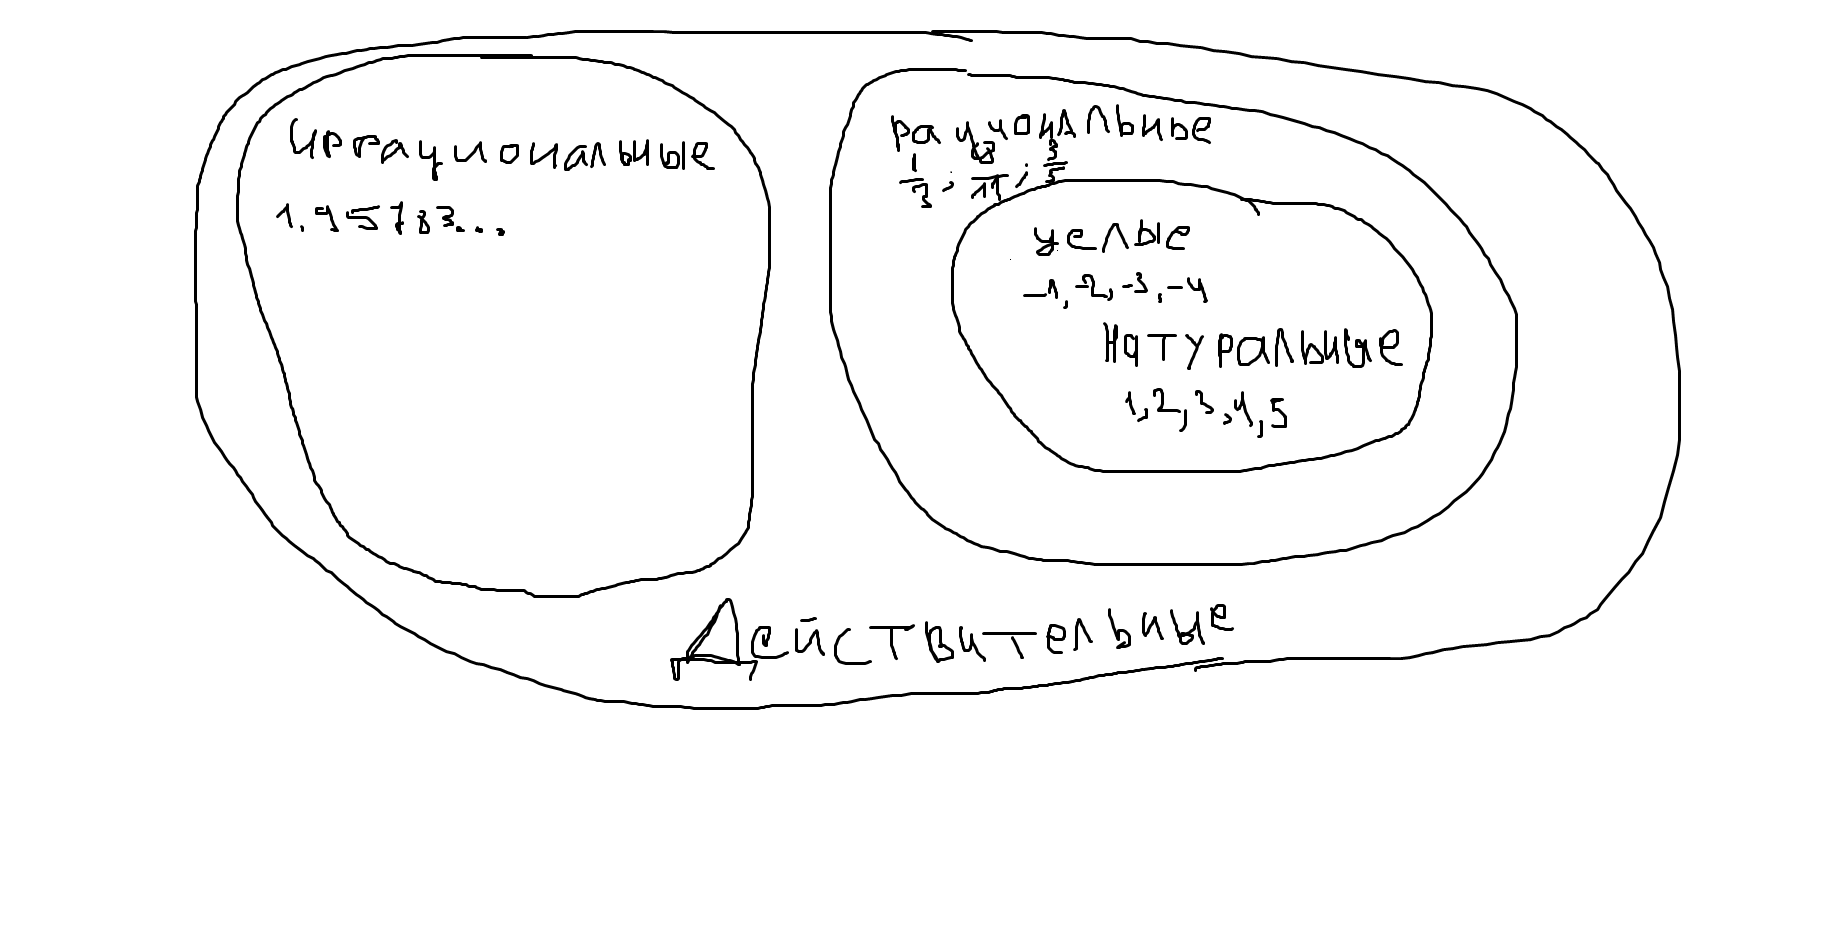 иррациональные
1,95783...
рациональные
1/3; 3/5
целые
-1, -2, -3, -4
натуральные
1, 2, 3, 4, 5
Действительные